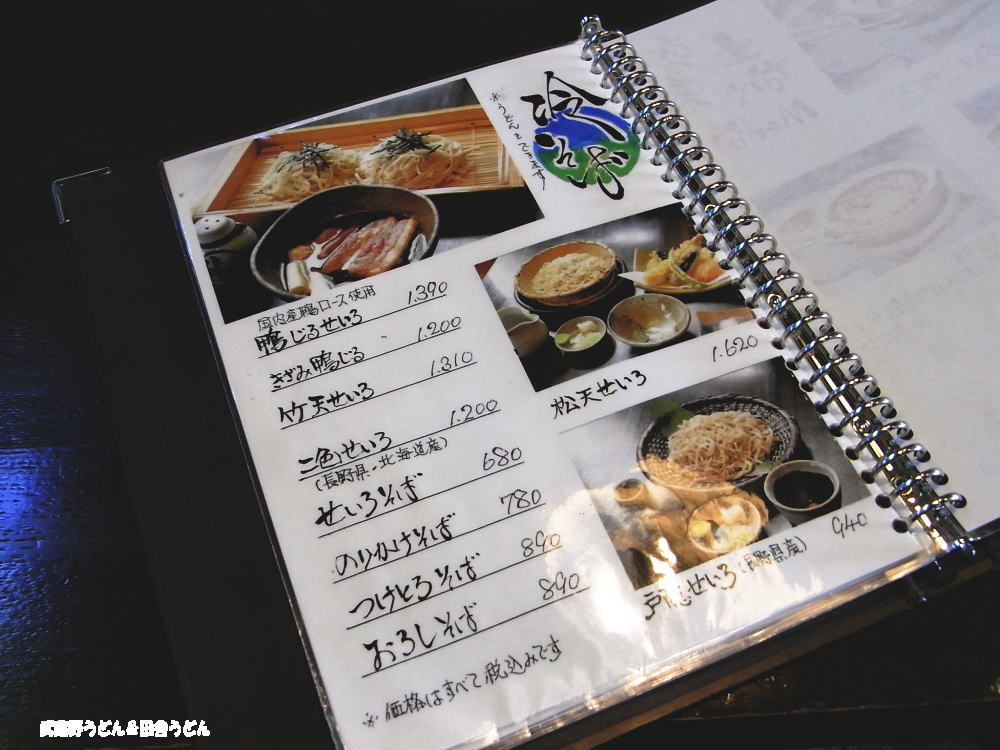 冷そば
※うどんもできます
国内産鴨ロース使用
鴨じるせいろ 1.390
きざみ鴨じる 1.200
竹天せいろ 1.310
二色せいろ 1.200
(長野県・北海道産)
せいろそば 680
のりかけそば 780
つけとろそば 890
おろしそば 890
※価格はすべて税込みです
1.620
松天せいろ
940
戸隠せいろ(長野県産)
武蔵野うどん&田舎うどん